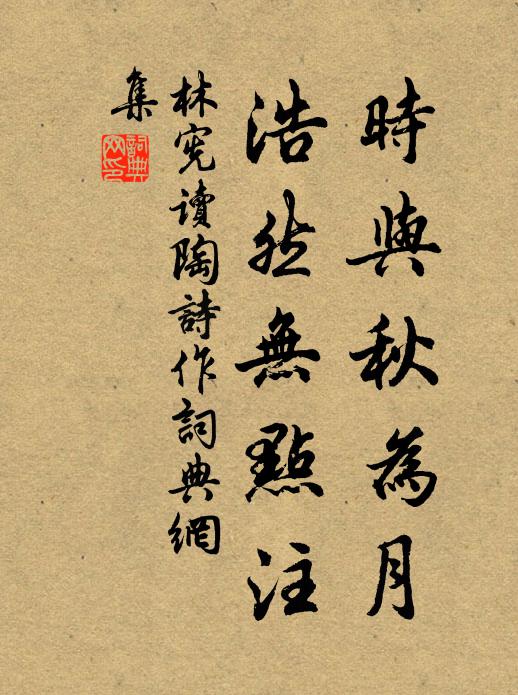 時與秋為月
浩然無點注
林憲讀陶詩作詞典網
集
詞典網印